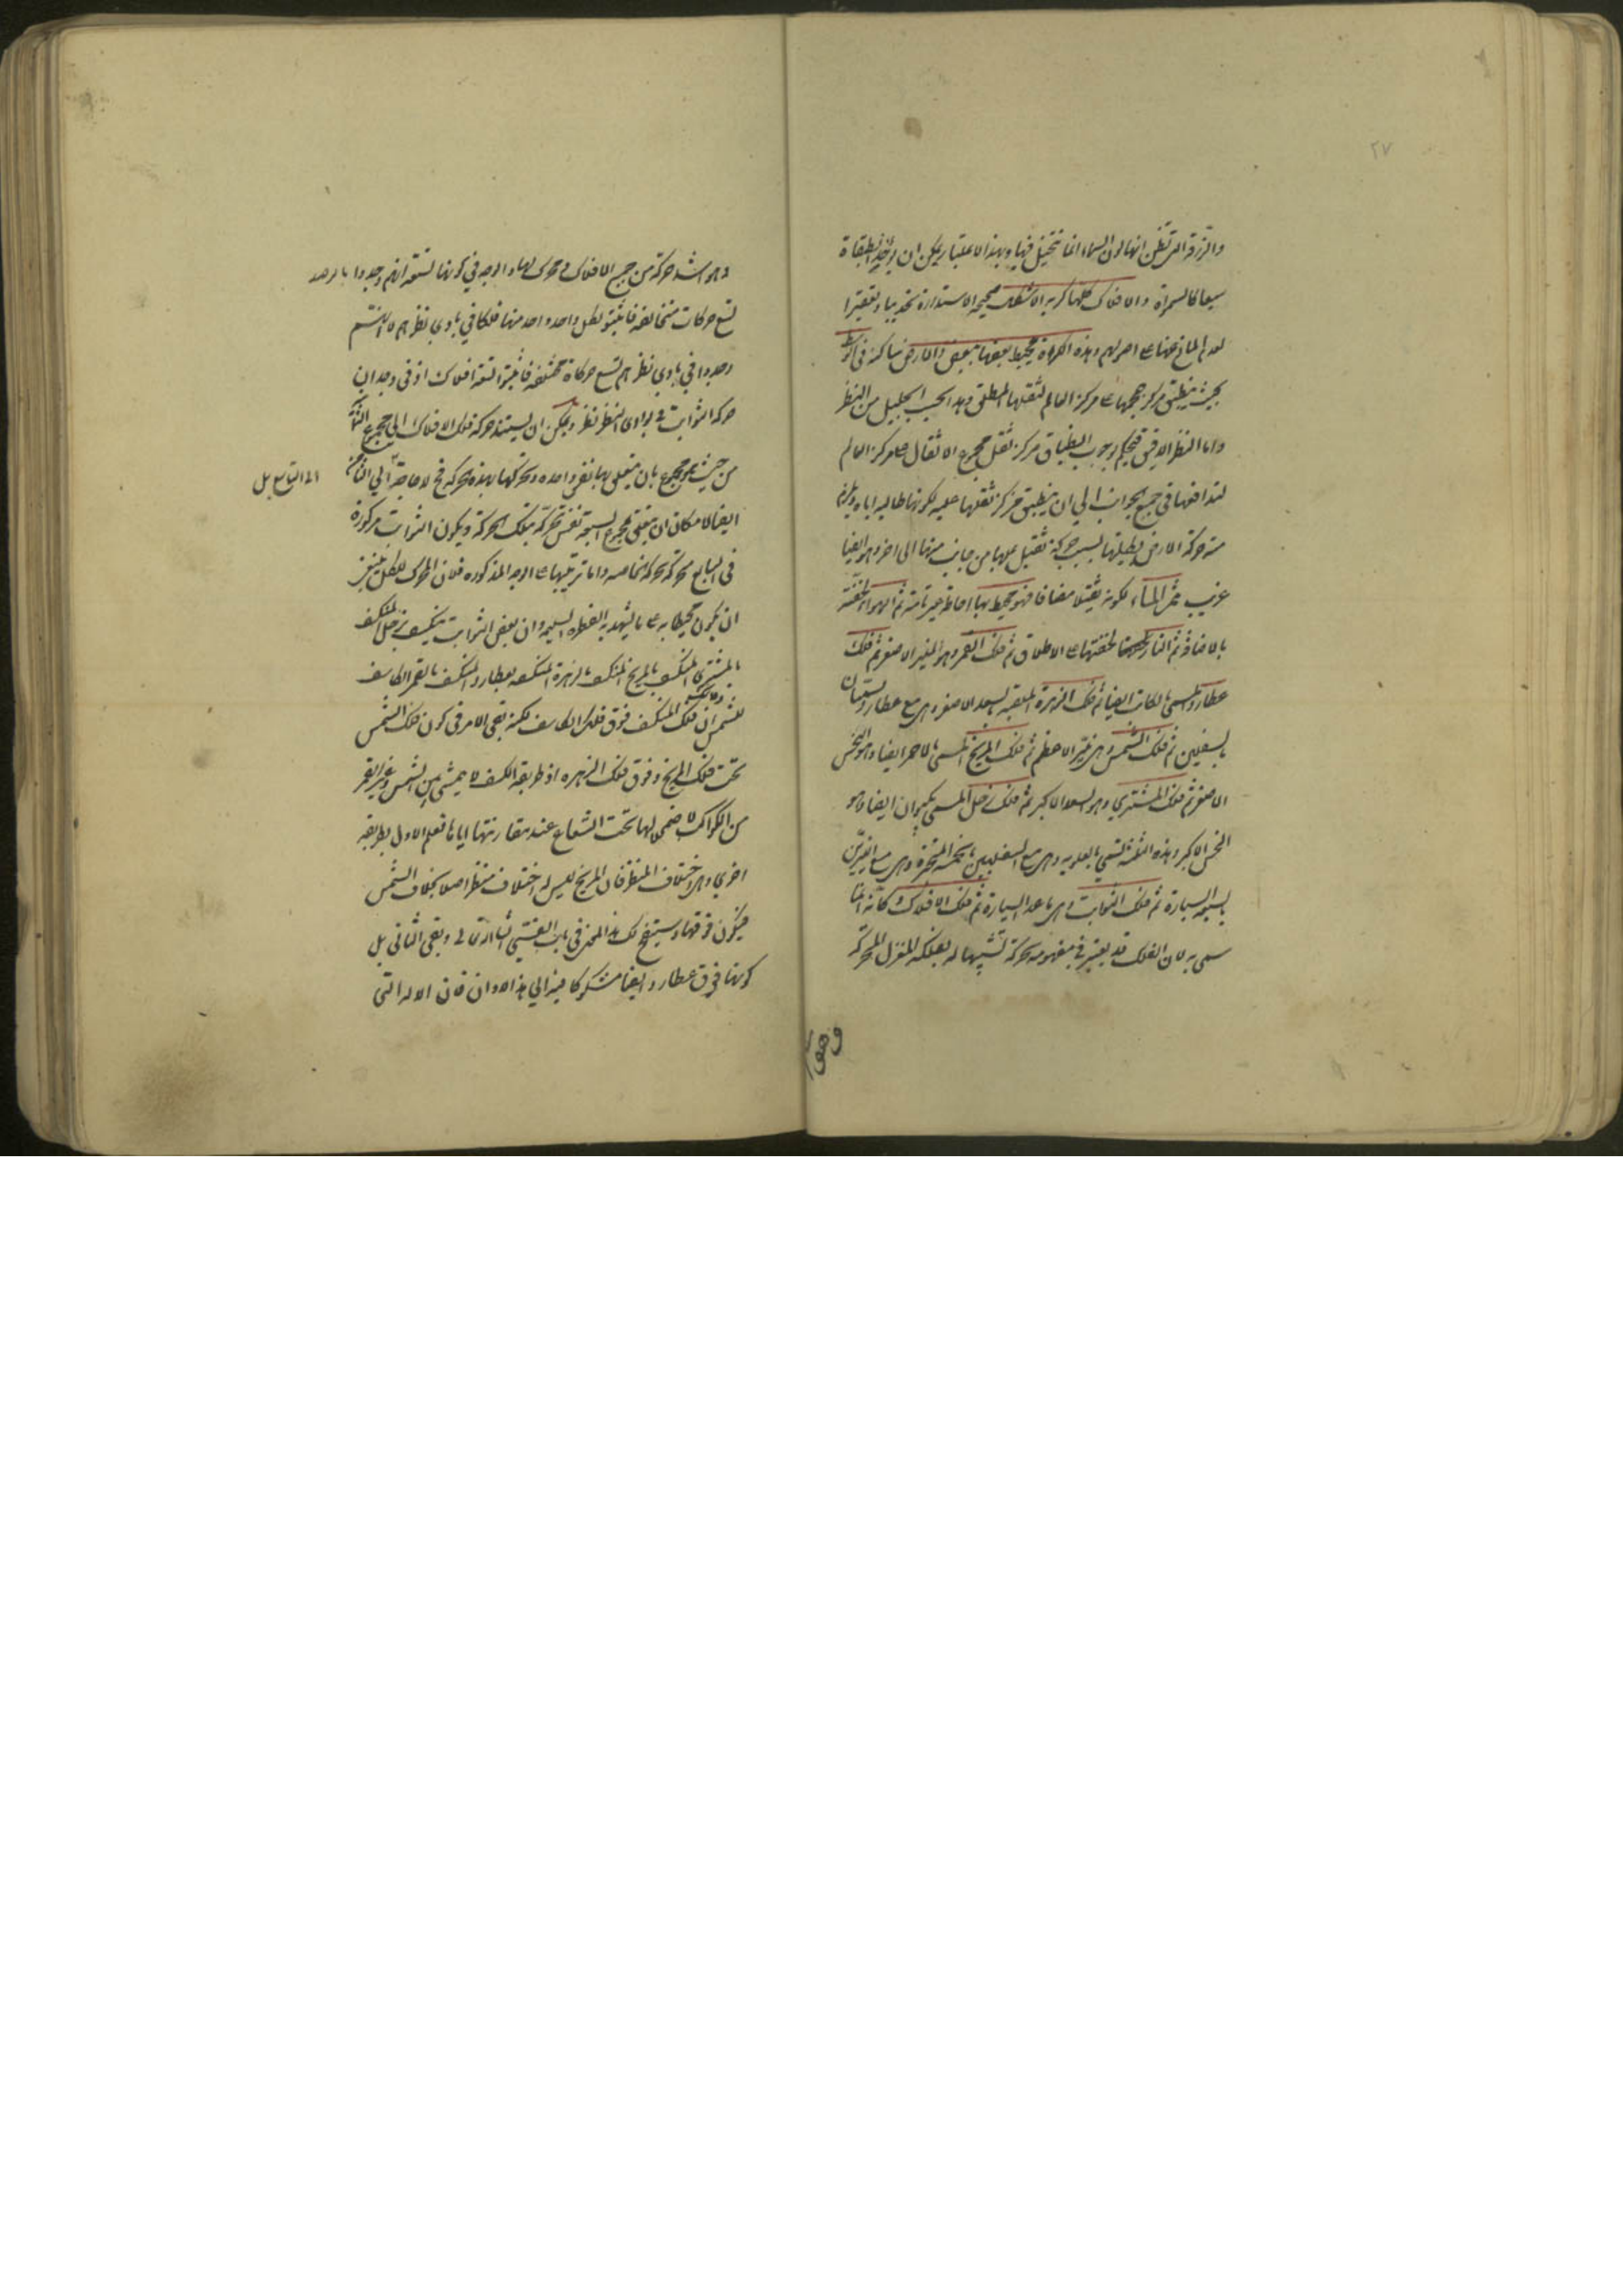 ٢٧
والزرقة التي تظن انها لون السماء انما تتخيل فيها وبهذا الاعتبار يمكن ان يؤخذ الطبقات
سبعا كالسموات والافلاك كلها كرية الاشكال صحيحة الاستدارة تحديبا وتقعيرا
لعدم المانع عنها على اصولهم وهذه الكرات محيط بعضها ببعض والارض ساكنة في الوسط
بحيث ينطبق مركز حجمها على مركز العالم لثقلها المطلق وهذا بحسب الجليل من النظر
واما النظر الدقيق فيحكم بوجوب انطباق مركز ثقل مجموع الاثقال على مركز العالم
لتدافعها في جميع الجوانب الى ان ينطبق مركز ثقلها عليه لكونها طالبة اياه ويلزم
منه حركة الارض بكليتها بسبب حركة ثقيل عليها من جانب منها الى اخر وهو ايضا
غريب ثم الماء لكونه ثقيلا مضافا فهو محيط بها احاطة غير تامة ثم الهواء لخفته
بالاضافة ثم النار لخفتها على الاطلاق ثم فلك القمر وهو المنير الاصغر ثم فلك
عطارد المسمى بالكاتب ايضا ثم فلك الزهرة الملقبة بالسعد الاصغر وهي مع عطارد يسميان
بالسفليين ثم فلك الشمس وهي نير الاعظم ثم فلك المريخ المسمى بالاحمر ايضا وهو النحس
الاصغر ثم فلك المشتري وهو السعد الاكبر ثم فلك زحل المسمى بكيوان ايضا وهو
النحس الاكبر وهذه الثلثة تسمى بالعلوية وهي مع السفليين بالخمسة المتحيرة وهي مع النيرين
بالسبعة السيارة ثم فلك الثوابت وهي ما عدا السيارة ثم فلك الافلاك وكأنه انما
سمي به لان الفلك قد يعتبر في مفهومه حركة تشبيها له بفلكة المغزل المتحركة
وهو
وهو اشد حركة من جميع الافلاك ومحرك لها والوجه في كونها تسعة انهم وجدوا بالرصد
تسع حركات متخالفة فاثبتوا لكل واحد واحد منها فلكا في بادي نظرهم
وجدوا في بادي نظرهم تسع حركات مختلفة فاثبتوا تسعة افلاك اذ في وجدان
حركة الثوابت في بوادي النظر نظر ويمكن ان يستند حركة فلك الافلاك الى مجموع الثمانية
من حيث هو مجموع بان يتعلق بها نفس واحدة وتحركها بهذه الحركة فح لا حاجة الى الثامن
الى التاسع بل
ايضا لامكان ان يتعلق بمجموع السبعة نفس تحركه بتلك الحركة ويكون الثوابت مركوزة
في السابع متحركة بحركته الخاصة واما ترتيبها على الوجه المذكور فلان المحرك للكل ينبغي
ان يكون محيطا به على ما يشهد به الفطرة السليمة وان بعض الثوابت ينكسف بزحل المنكسف
بالمشتري المنكسف بالمريخ المنكسف بالزهرة المنكسفة بعطارد المنكسف بالقمر الكاسف
للشمس ان فلك المنكسف فوق فلك الكاسف لكنه بقي الامر في كون فلك الشمس
تحت فلك المريخ وفوق فلك الزهرة اذ طريقة الكسف لا يتمشى بين الشمس وغير القمر
من الكواكب لاضمحلالها تحت الشعاع عند مقارنتها اياها فعلم الاول بطريقة
اخرى وهي اختلاف المنظر فان المريخ ليس له اختلاف منظر اصلا بخلاف الشمس
فيكون فوقها وسيتضح لك هذا المعنى في باب القسي ان شاء الله تعالى وبقي الثاني بل
كونها فوق عطارد ايضا مشكوكا فيه الى هذا الاوان فان الآلة التي